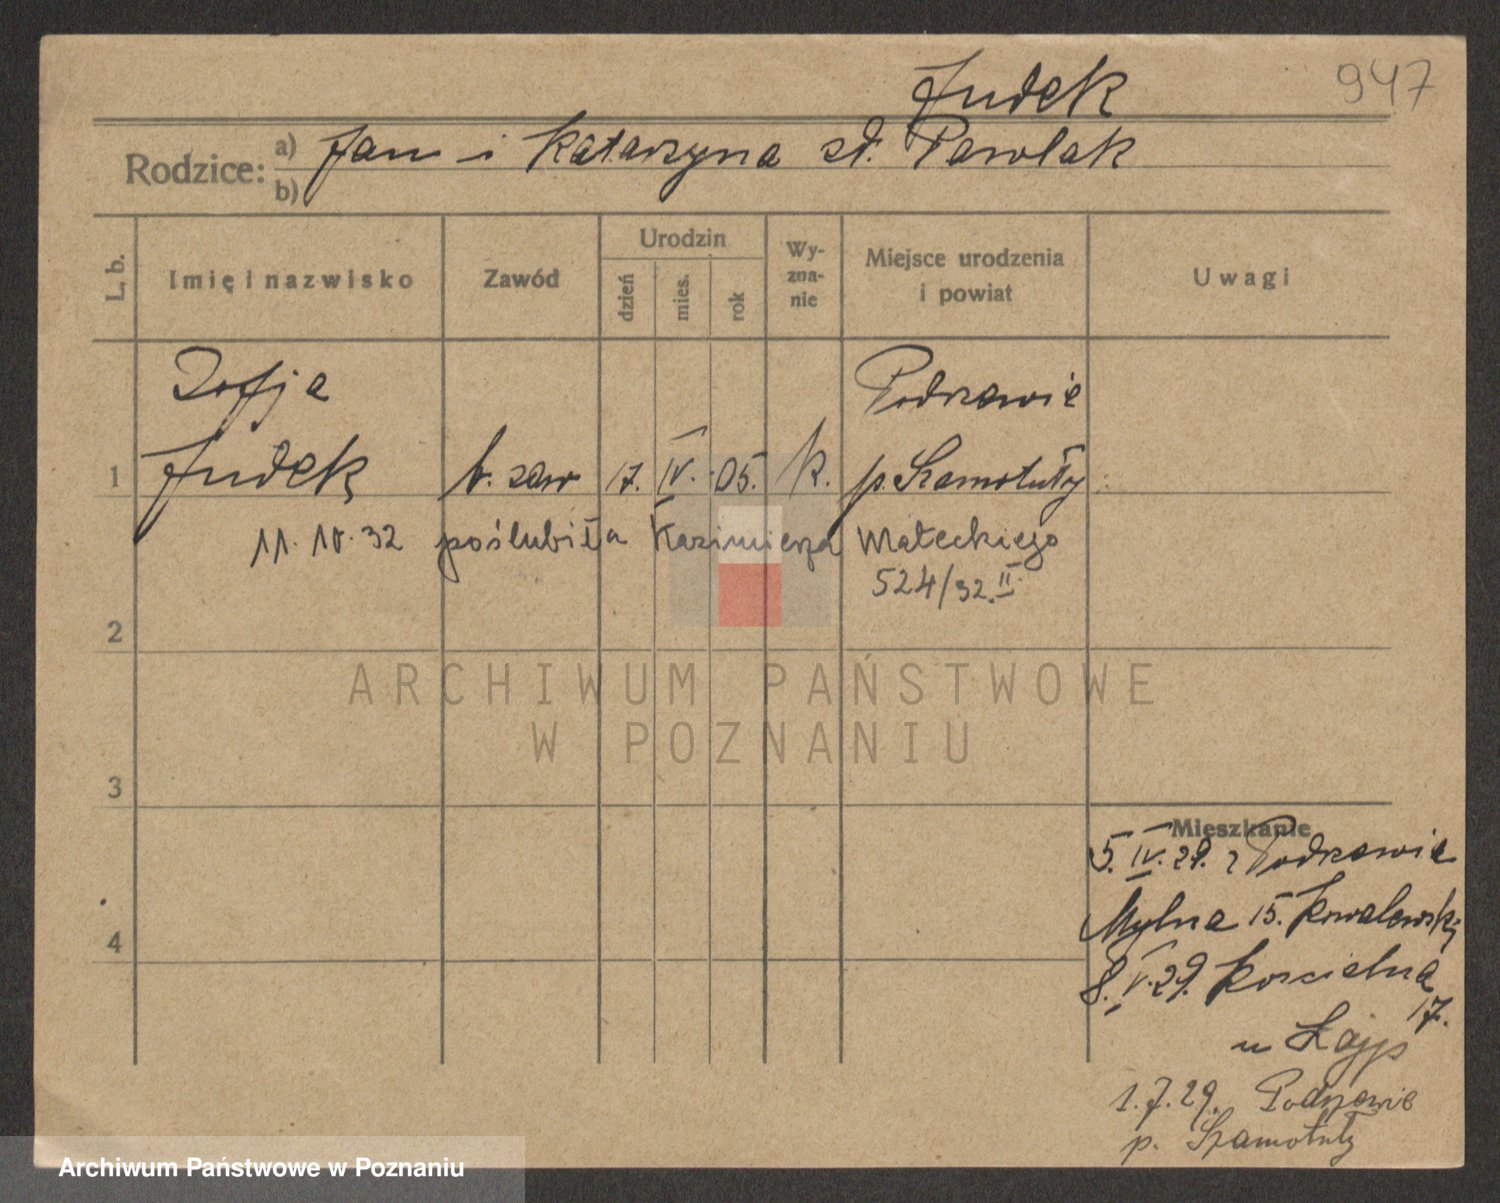 947
Judek
Rodzice: a) Jan i Katarzyna zd. Pawlak
b)
L. b.
Imię i nazwisko
Zawód
Urodzin
dzień
mies.
rok
Wy-
zna-
nie
Miejsce urodzenia
i powiat
Uwagi
Zofja
Podrzewie
1 Judek b. zaw 17. IV. 05. k. p. Szamotuły
11. IV. 32 poślubiła Kazimierza Małeckiego
524/32. II.
2
ARCHIWUM PAŃSTWOWE
W POZNANIU
3
Mieszkanie
5. IV. 29. z Podrzewie
Mylna 15. Kowalewski
4
8. V. 29. Koscielna
17.
u
1.7.29. Podrzewie
p. Szamotuły
Archiwum Państwowe w Poznaniu